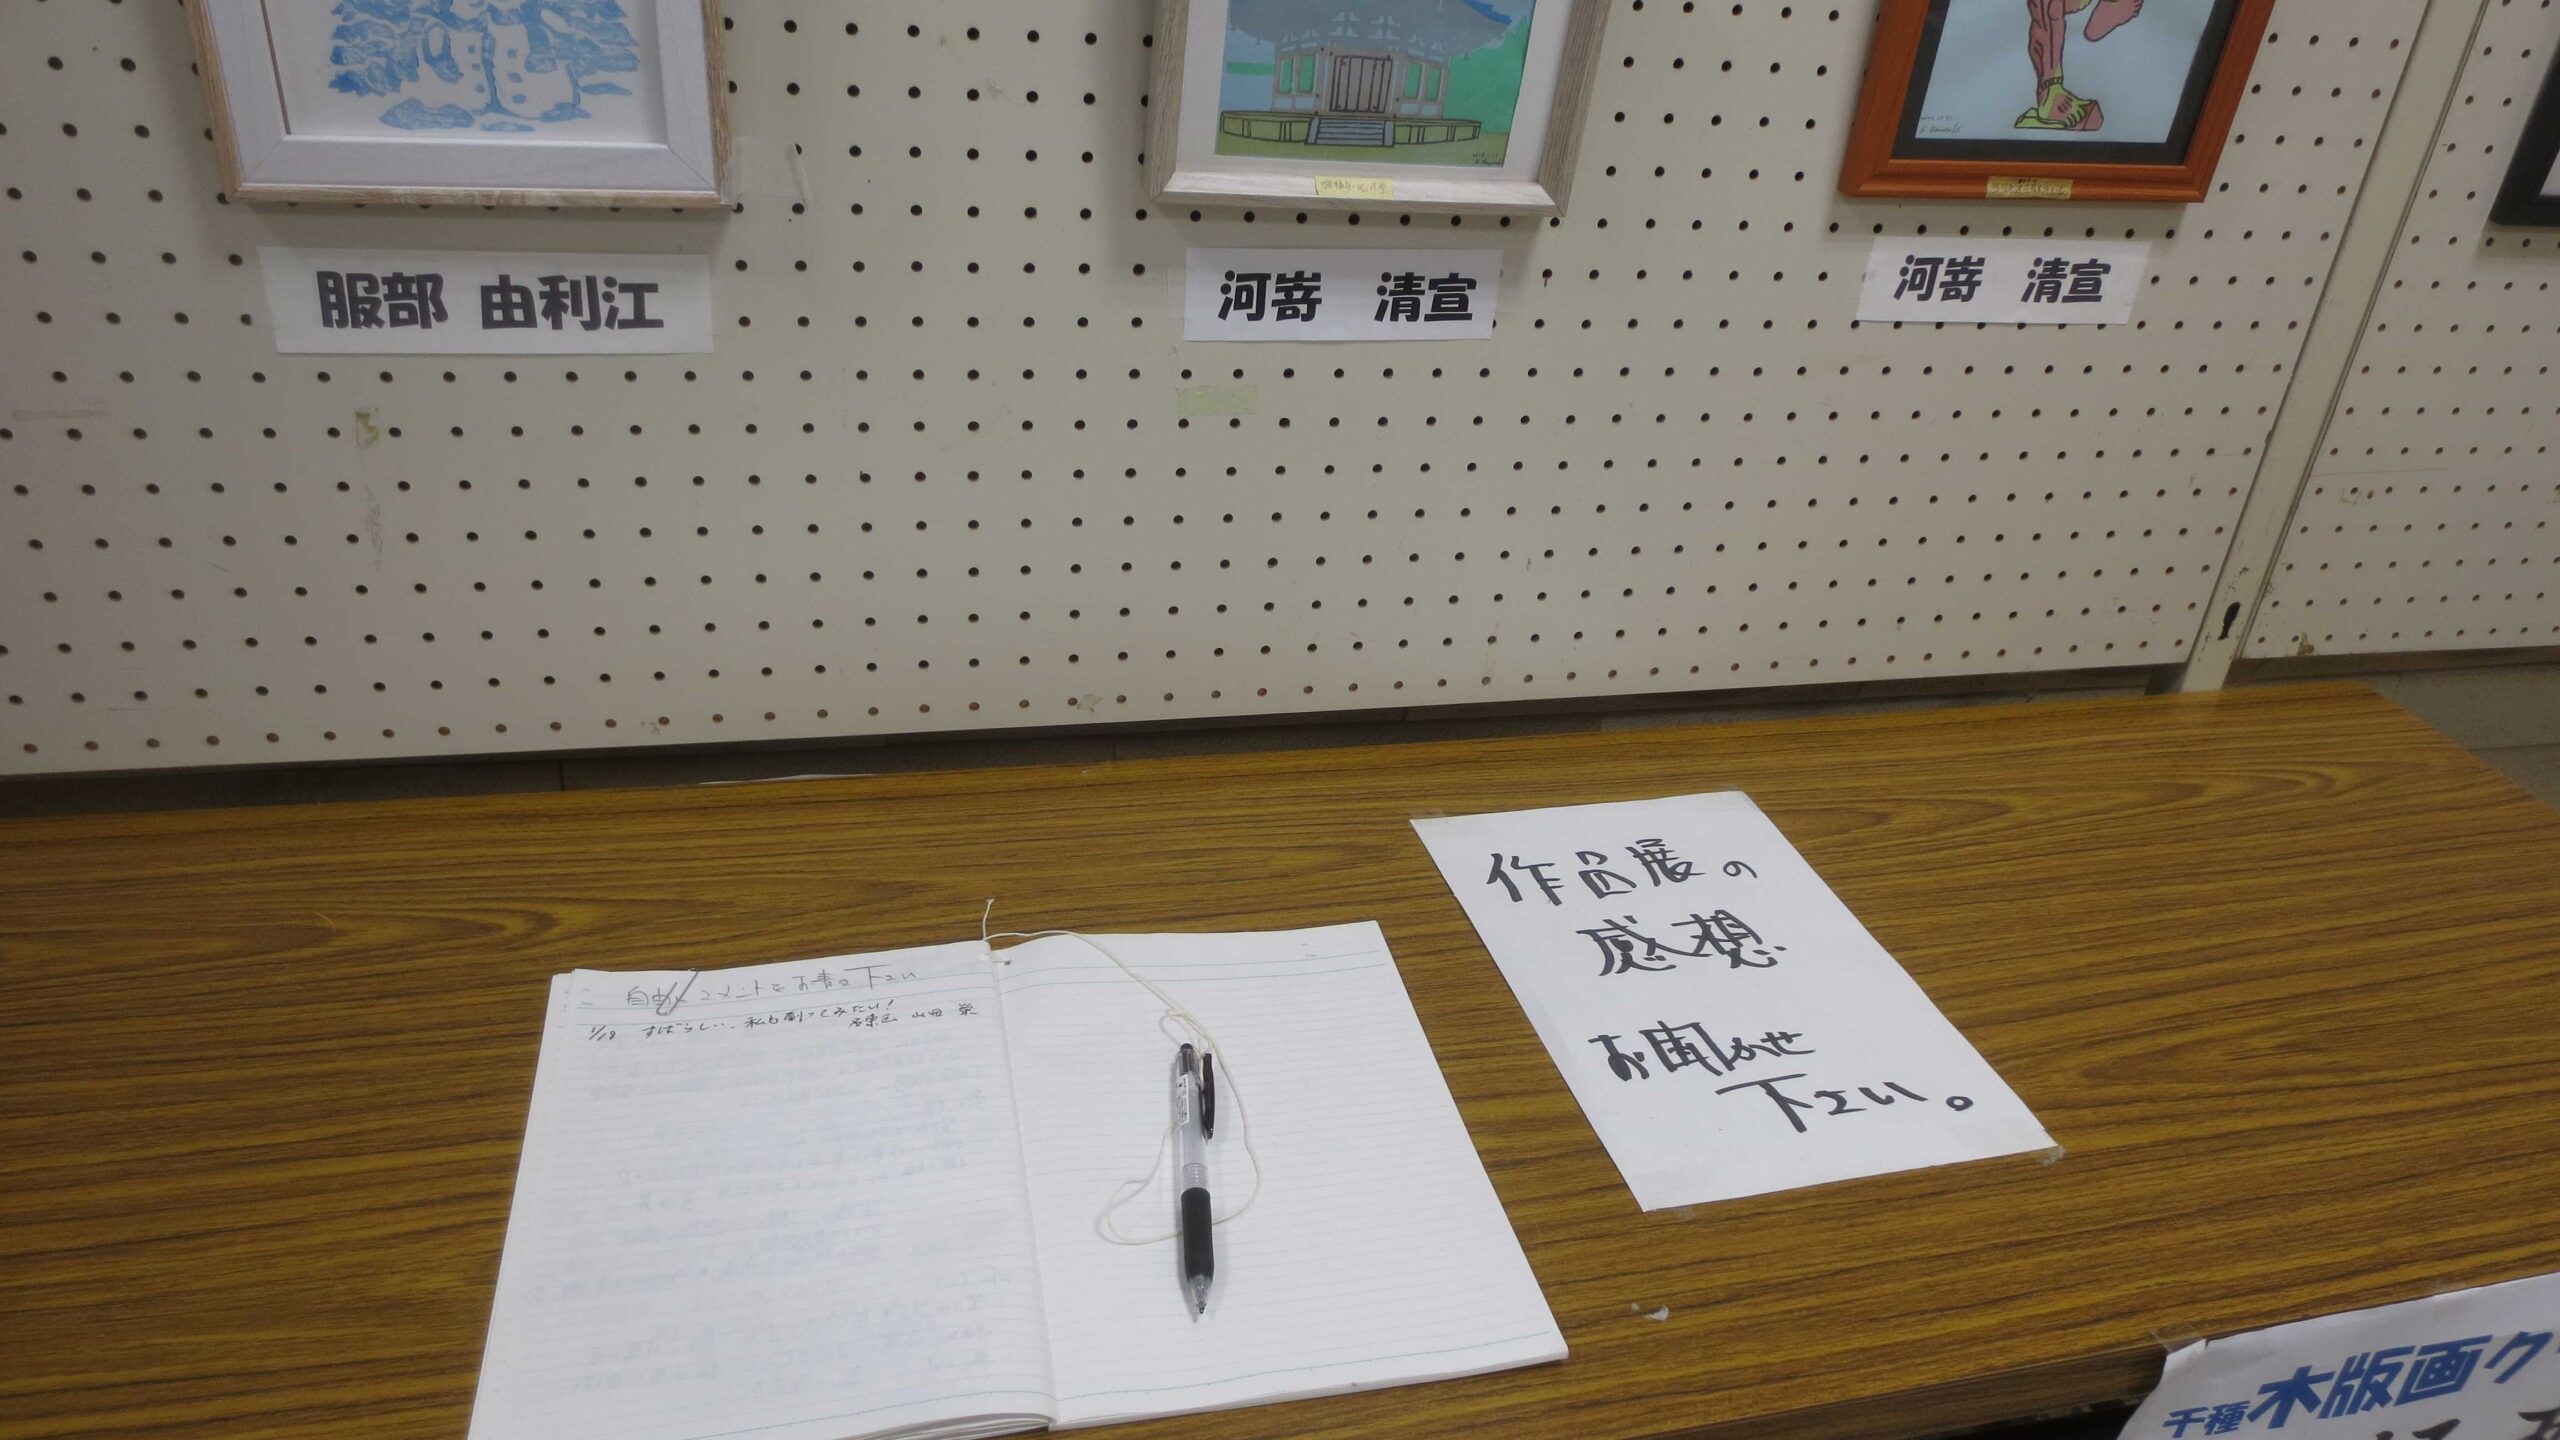 服部 由利江
河嵜 清宣
河嵜 清宣
自由にコメントをお書き下さい
1/18 すばらしい、私も刷ってみたい!
名東区 山田 栄
作品展の
感想
お聞かせ
下さい。
千種木版画ク